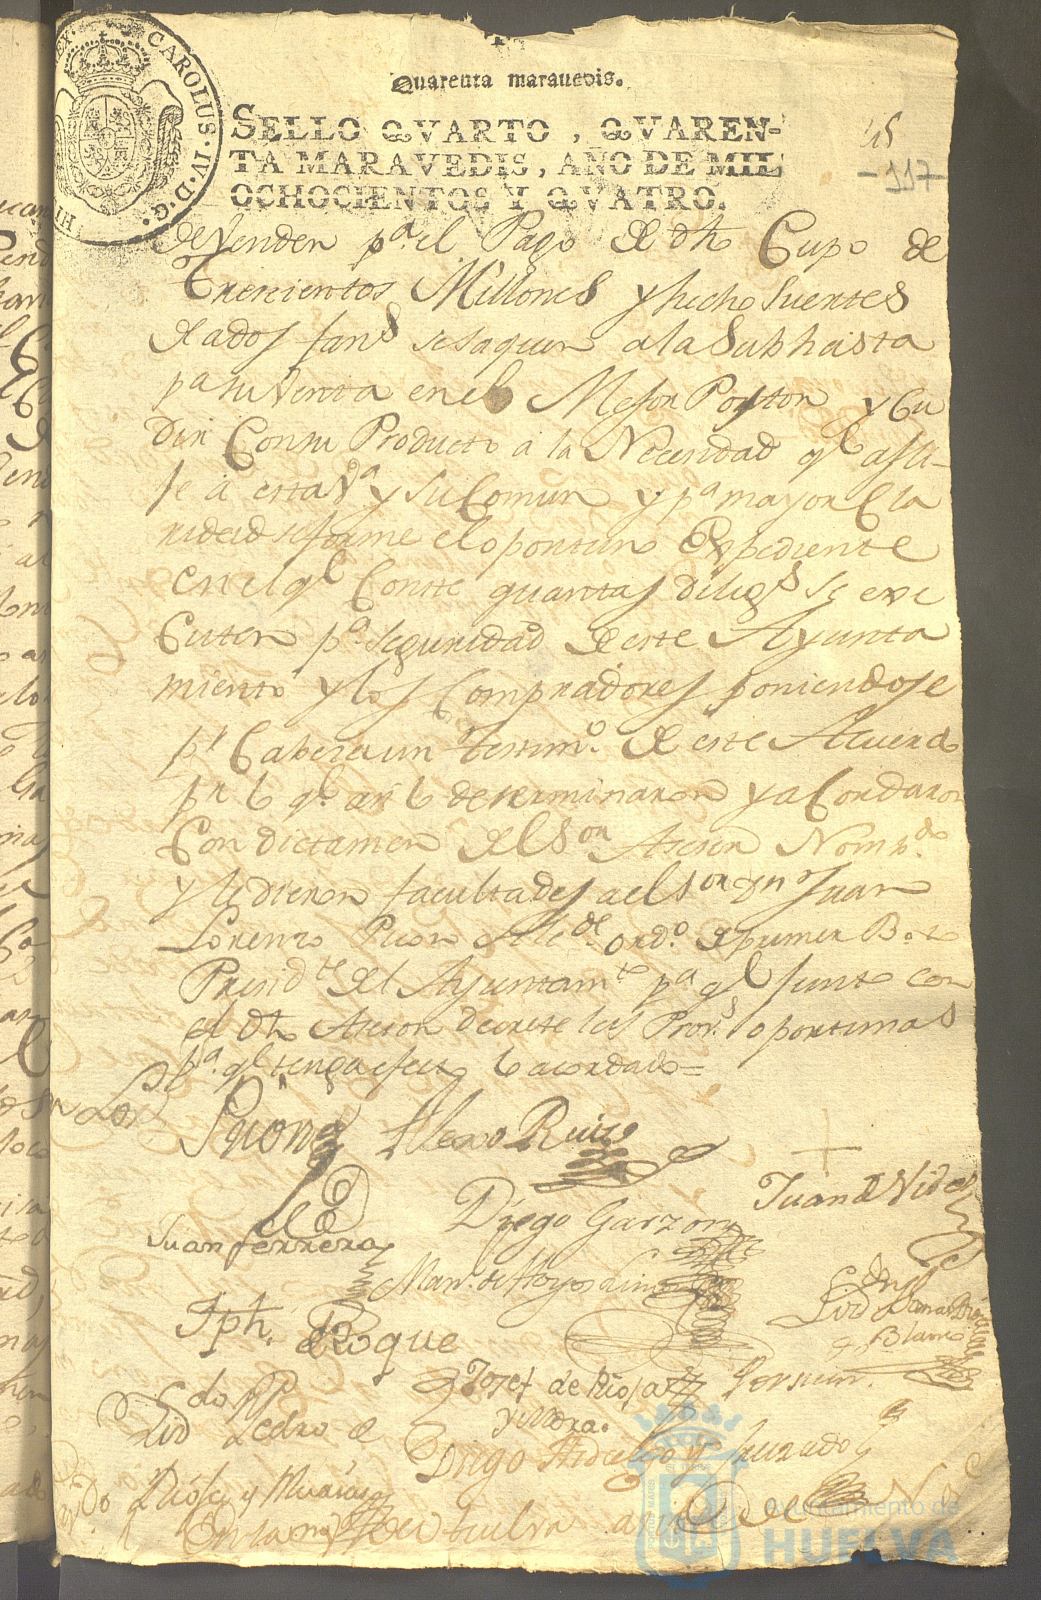 Quarenta maravedis.
SELLO QVARTO, QVAREN-
TA MARAVEDIS, AÑO DE MIL
OCHOCIENTOS Y QVATRO.
CAROLUS IV D G HI
117
de Venden pa. el Pago de dho Cupo de
Trescientos Millones y hecho Suertes
a la Subhasta
pa su Venta en el Mejor Postor y Cu
Dir Con su Producto à la Necesidad qe afli-
je à esta Va y su Comun y pa mayor Cla
ridad se forme el oportuno Expediente
en el qe Conste quantas diligs Se exe
Cuten pa. seguridad de este Ayunta
miento y los Compradores poniendose
pr Cabeza un testimo. de este Acuerdo
pr lo qe asi lo determinaron y acordaron
Con dictamen del Sor Asesor Nomb.do
y le dieron facultades a el Sor Dn Juan
Lorenzo Alcde ordo. de primer Boto
Presidte del Ayuntamto pa qe junto con
el dho Asesor decrete las Provs oportunas
pa. qe tenga efecto lo acordado=
Alexo Ruiz
Juan de Vides
Diego Garzon
Juan ferrera
Man. de Hoyos
Jph. Roque
Blanco
Josef de Rioja
Asesor.
Ldo Pedro de
Diego Hidalgo y Jurado
En la
Ayuntamiento de
HUELVA